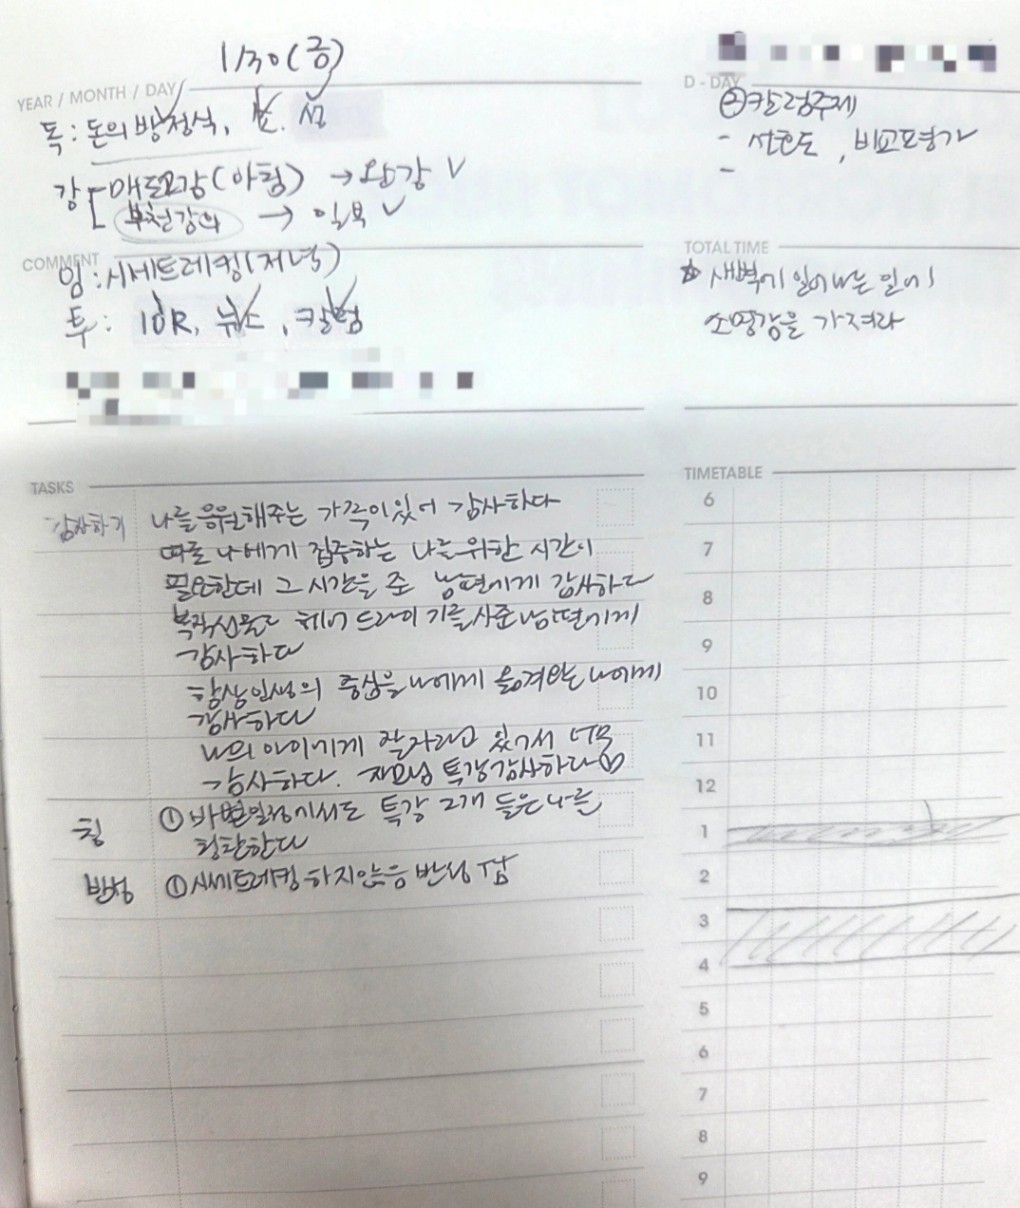 1/30(금)
YEAR / MONTH / DAY
독 : 돈의 방정식,
강 매도고강(아침) → 완강 ✓
부천강의 → 일부 ✓
COMMENT
임 : 시세트레킹(저녁)
투 : 10R, 뉴스, 칼럼
D - DAY
② 칼럼주제
- 선호도, 비교평가
-
TOTAL TIME
☆ 새벽에 일어나는 일에
소명감을 가져라
TASKS
감사하기 나를 응원해주는 가족이 있어 감사하다
따로 나에게 집중하는 나를 위한 시간이
필요한데 그 시간을 준 남편에게 감사하다
복직선물로 헤어 드라이기를 사준 남편에게
감사하다
항상 인생의 중심을 나에게 옮겨오는 나에게
감사하다
나의 아이에게 잘 자라고 있어서 너무
감사하다. 자모님 특강 감사하다♡
칭 ① 바쁜일정에서도 특강 2개 들은 나를
칭찬한다
반성 ① 시세트레킹 하지않음 반성
TIMETABLE
6
7
8
9
10
11
12
1
2
3
4
5
6
7
8
9